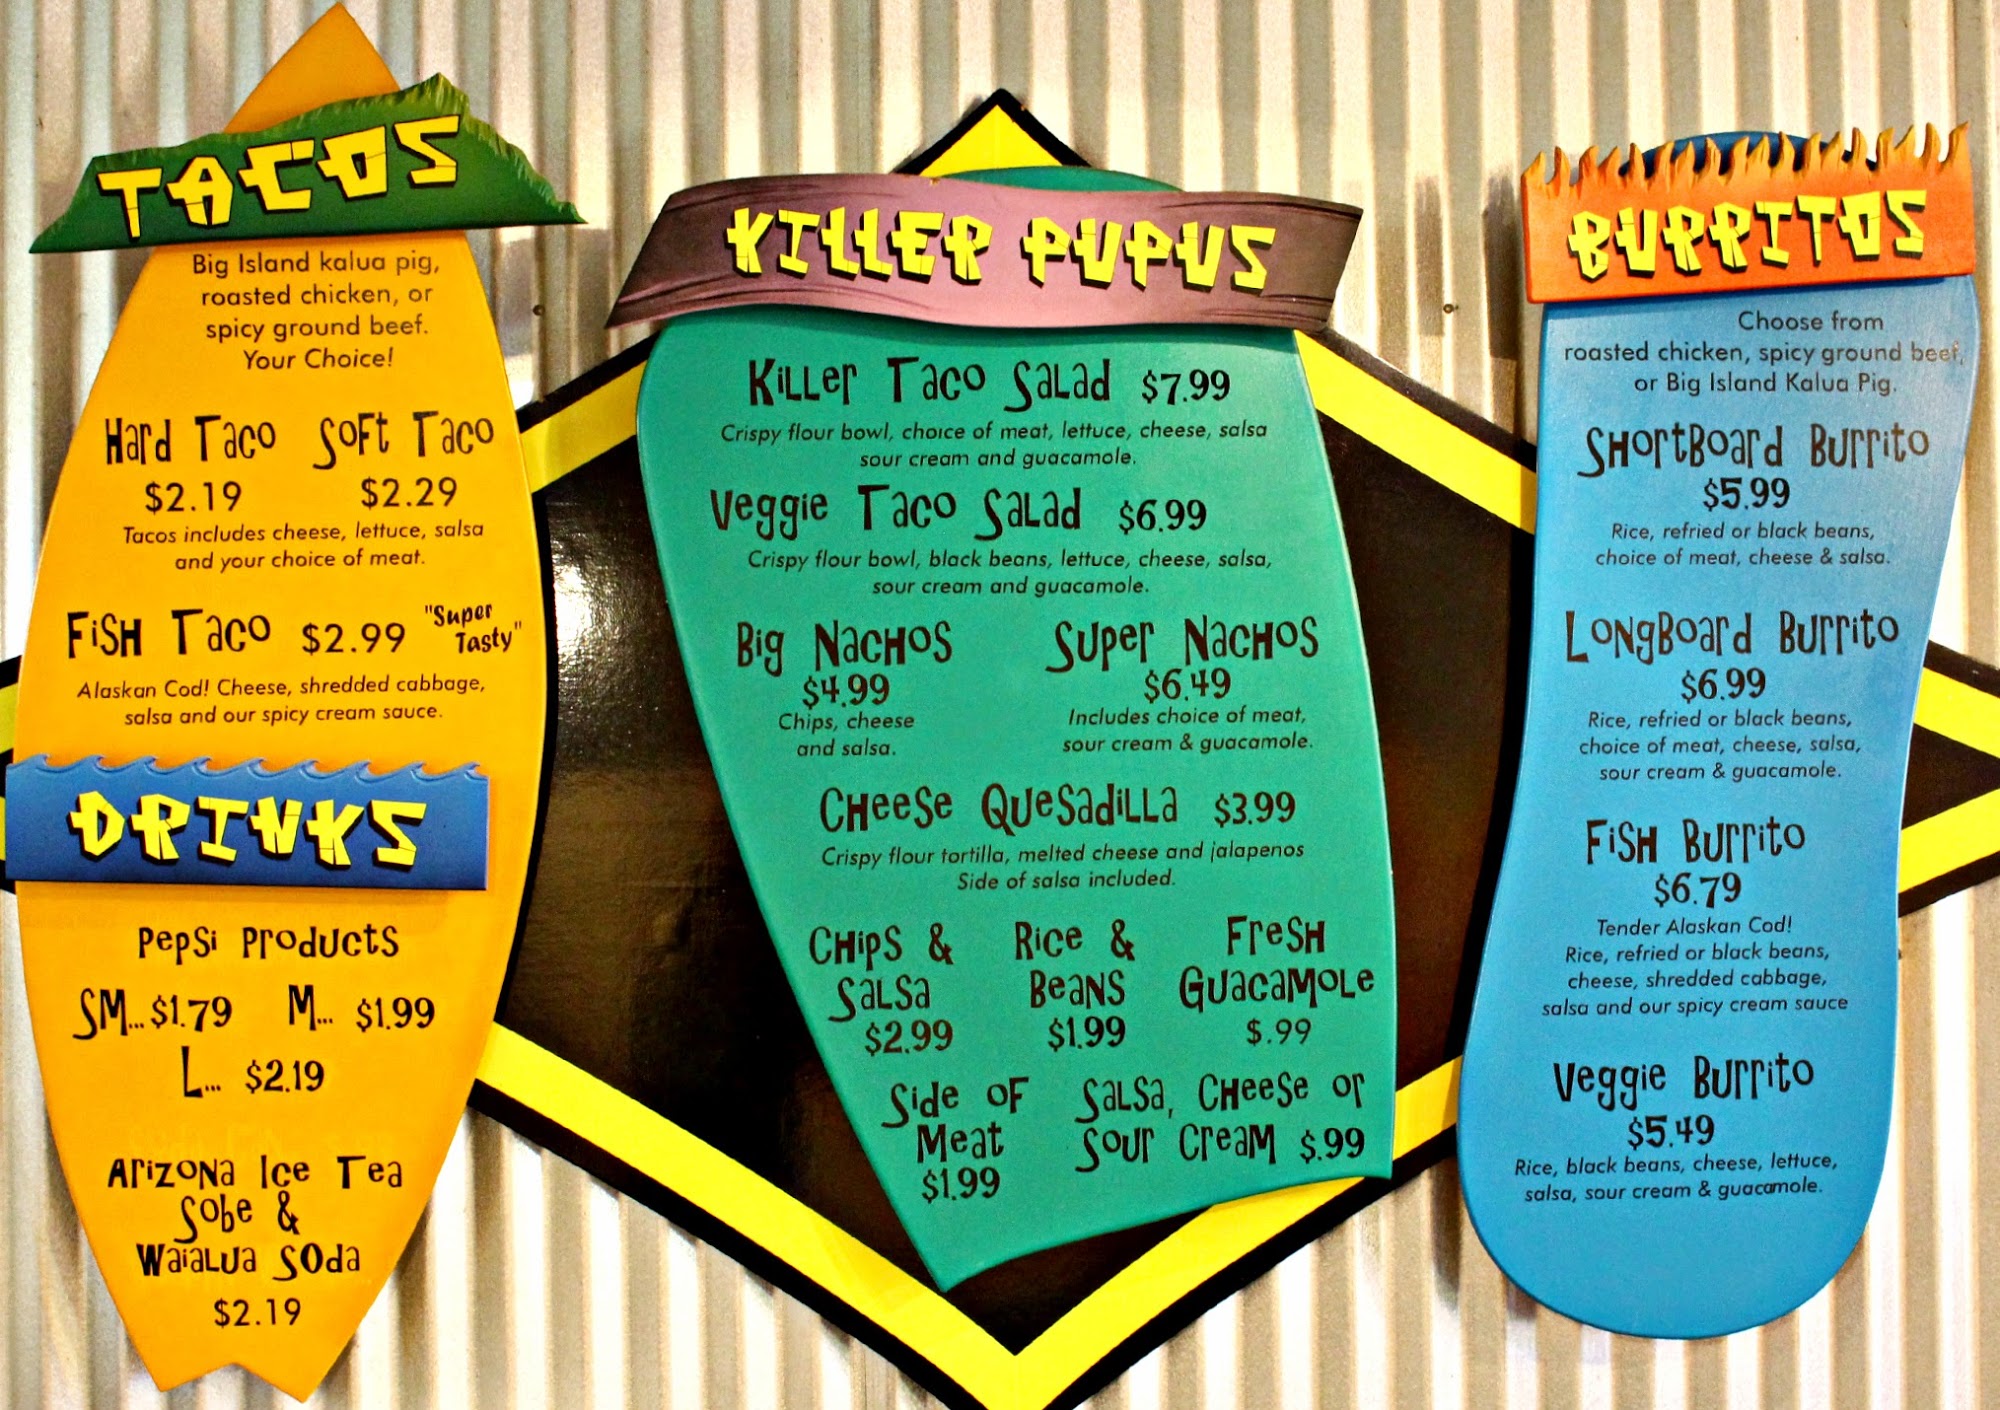 TACOS
Big Island kalua pig,
roasted chicken, or
spicy ground beef.
Your Choice!
Hard Taco Soft Taco
$2.19 $2.29
Tacos includes cheese, lettuce, salsa
and your choice of meat.
Fish Taco $2.99 "Super
Tasty"
Alaskan Cod! Cheese, shredded cabbage,
salsa and our spicy cream sauce.
DRINKS
Pepsi Products
SM... $1.79 M... $1.99
L... $2.19
Arizona Ice Tea
Sobe &
Waialua Soda
$2.19
KILLER PUPUS
Killer Taco Salad $7.99
Crispy flour bowl, choice of meat, lettuce, cheese, salsa
sour cream and guacamole.
Veggie Taco Salad $6.99
Crispy flour bowl, black beans, lettuce, cheese, salsa,
sour cream and guacamole.
Big Nachos
$4.99
Chips, cheese
and salsa.
Super Nachos
$6.49
Includes choice of meat,
sour cream & guacamole.
Cheese Quesadilla $3.99
Crispy flour tortilla, melted cheese and jalapenos
Side of salsa included.
Chips &
Salsa
$2.99
Rice &
Beans
$1.99
Fresh
Guacamole
$.99
Side of
Meat
$1.99
Salsa, Cheese or
Sour Cream $.99
BURRITOS
Choose from
roasted chicken, spicy ground beef,
or Big Island Kalua Pig.
ShortBoard Burrito
$5.99
Rice, refried or black beans,
choice of meat, cheese & salsa.
LongBoard Burrito
$6.99
Rice, refried or black beans,
choice of meat, cheese, salsa,
sour cream & guacamole.
Fish Burrito
$6.79
Tender Alaskan Cod!
Rice, refried or black beans,
cheese, shredded cabbage,
salsa and our spicy cream sauce
Veggie Burrito
$5.49
Rice, black beans, cheese, lettuce,
salsa, sour cream & guacamole.